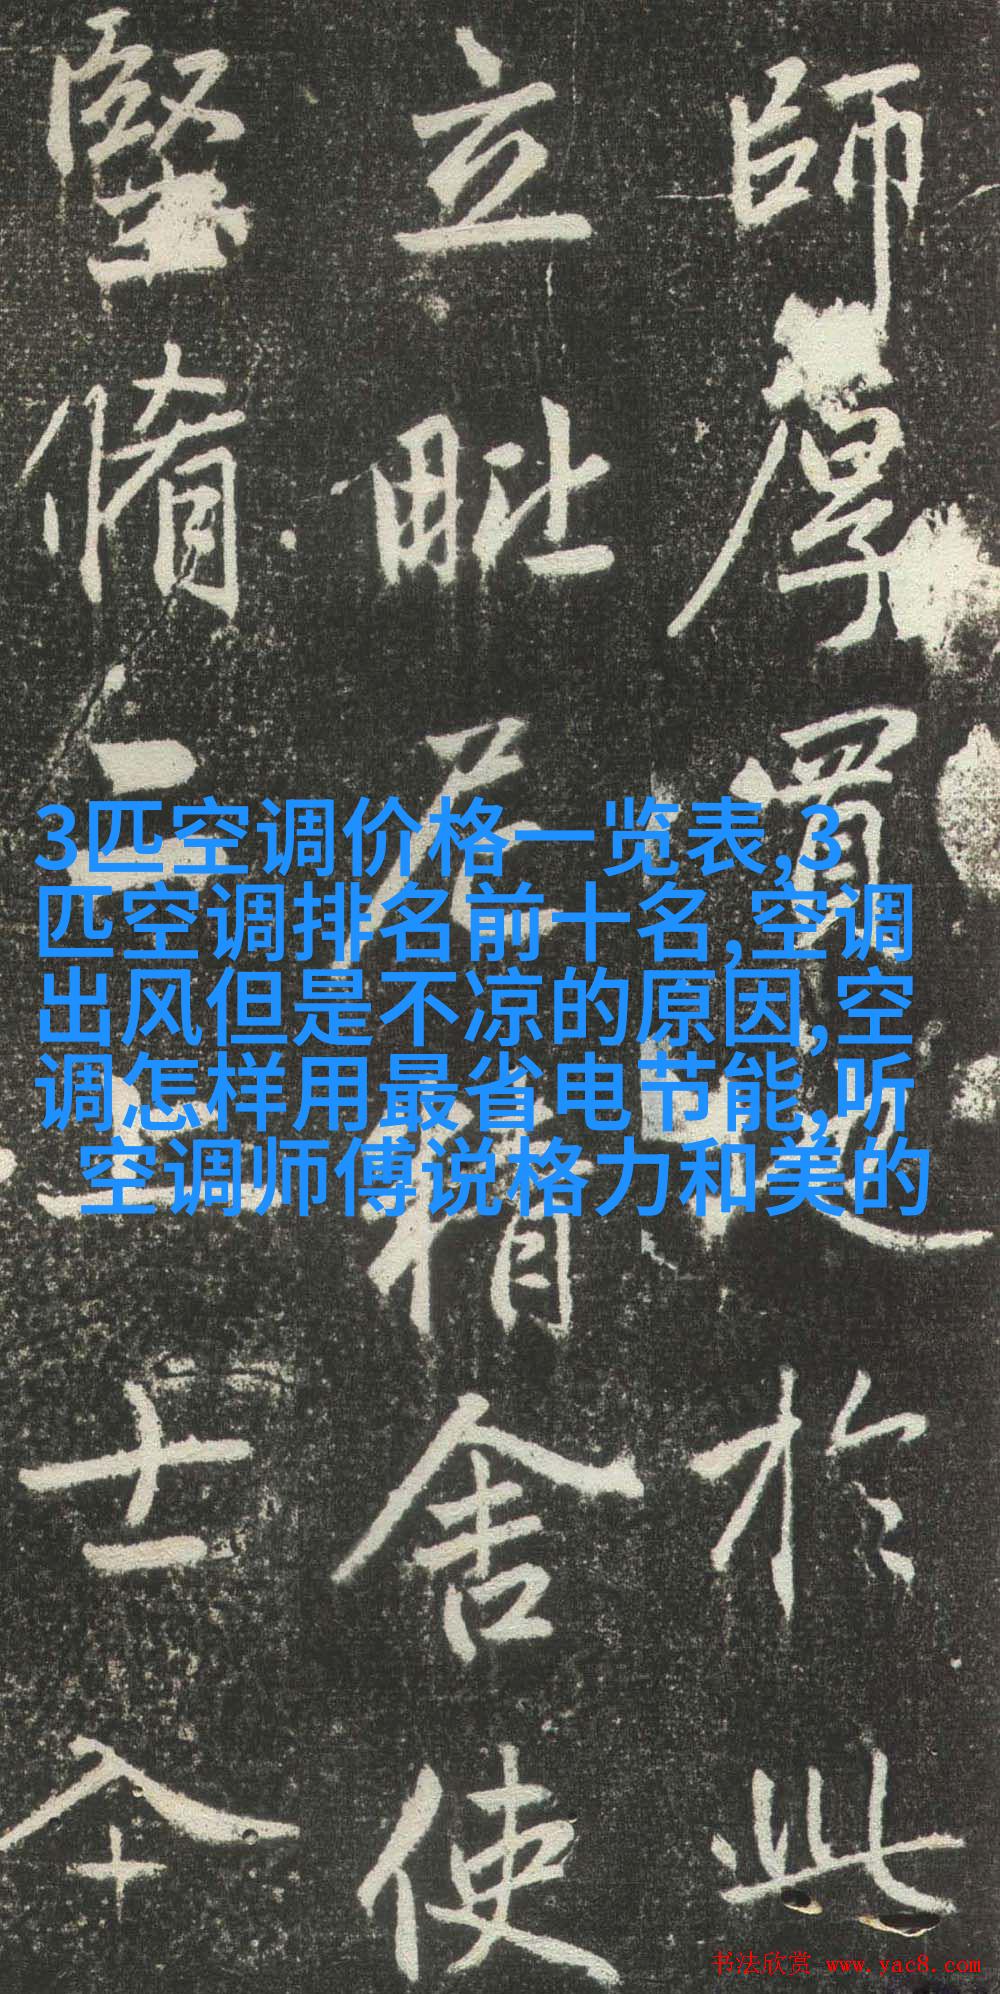 師厚胃
於此
立毗尼
精舍使
堅脩
士
3匹空调价格一览表,3
匹空调排名前十名,空调
出风但是不凉的原因,空
调怎样用最省电节能,听
空调师傅说格力和美的
书法欣赏 www.yac8.com